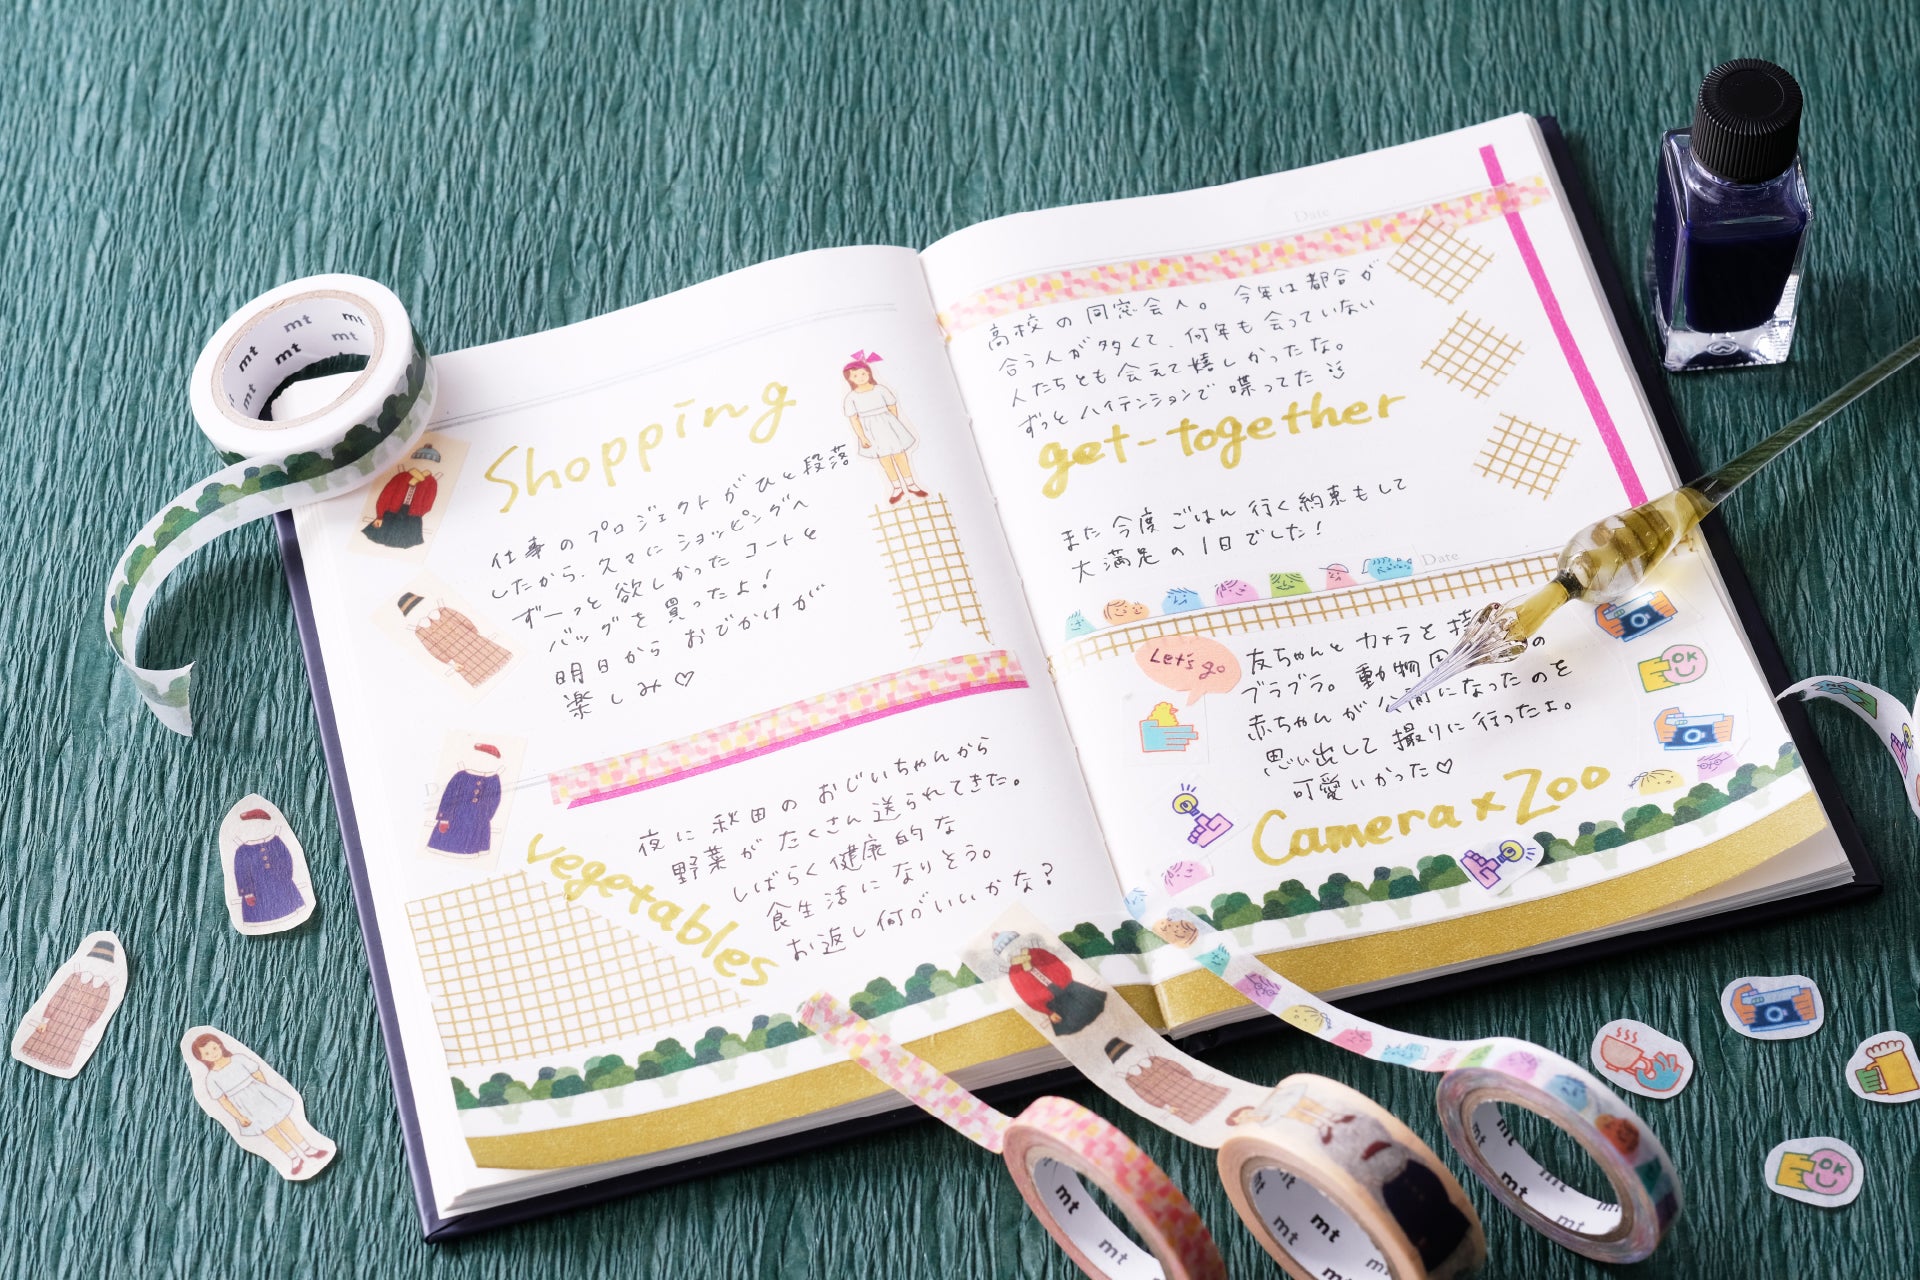 Shopping
仕事のプロジェクトがひと段落
したから、久々にショッピングへ
ずーっと欲しかったコートと
バッグを買ったよ!
明日からおでかけが
楽しみ♡
夜に秋田のおじいちゃんから
野菜がたくさん送られてきた。
しばらく健康的な
食生活になりそう。
お返し何がいいかな?
vegetables
Date
高校の同窓会へ。今年は都合が
合う人が多くて、何年も会っていない
人たちとも会えて嬉しかったな。
ずっとハイテンションで喋ってた
get-together
また今度ごはん行く約束もして
大満足の1日でした!
Date
Let's go
友ちゃんとカメラを持
ブラブラ。動物園の
赤ちゃんが公開になったのを
思い出して撮りに行ったよ。
可愛いかった♡
Camera×Zoo
OK
OK
mt mt mt
mt mt mt
mt
mt
mt
mt
mt
mt
mt